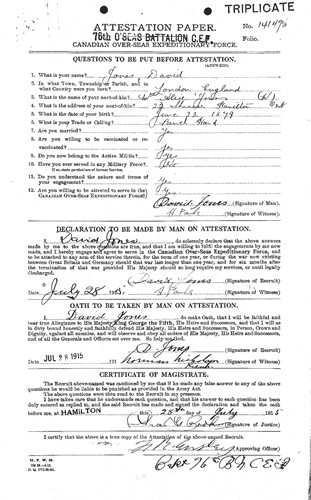 TRIPLICATE
ATTESTATION PAPER.
No.
76th O'SEAS BATTALION C.E.F.
Folio.
CANADIAN OVER-SEAS EXPEDITIONARY FORCE.
QUESTIONS TO BE PUT BEFORE ATTESTATION.
(ANSWERS)
1. What is your name? Jones, David
2. In what Town, Township or Parish, and in what Country were you born? London England
3. What is the name of your next-of-kin? Jones
4. What is the address of your next-of-kin? 22 Hamilton Ont
5. What is the date of your birth? June 22 1879
6. What is your Trade or Calling? Hand
7. Are you married? Yes
8. Are you willing to be vaccinated or re-vaccinated? Yes
9. Do you now belong to the Active Militia?
10. Have you ever served in any Military Force?
If so, state particulars of former Service.
11. Do you understand the nature and terms of your engagement? Yes
12. Are you willing to be attested to serve in the CANADIAN OVER-SEAS EXPEDITIONARY FORCE?
David Jones (Signature of Man).
(Signature of Witness).
DECLARATION TO BE MADE BY MAN ON ATTESTATION.
I, David Jones, do solemnly declare that the above answers
made by me to the above questions are true, and that I am willing to fulfil the engagements by me now
made, and I hereby engage and agree to serve in the Canadian Over-Seas Expeditionary Force, and to
be attached to any arm of the service therein, for the term of one year, or during the war now existing
between Great Britain and Germany should that war last longer than one year, and for six months after
the termination of that war provided His Majesty should so long require my services, or until legally
discharged.
David Jones (Signature of Recruit)
Date July 28 1915. (Signature of Witness)
OATH TO BE TAKEN BY MAN ON ATTESTATION.
I, David Jones, do make Oath, that I will be faithful and
bear true Allegiance to His Majesty King George the Fifth, His Heirs and Successors, and that I will as
in duty bound honestly and faithfully defend His Majesty, His Heirs and Successors, in Person, Crown and
Dignity, against all enemies, and will observe and obey all orders of His Majesty, His Heirs and Successors,
and of all the Generals and Officers set over me. So help me God.
D Jones (Signature of Recruit)
Date JUL 28 1915 (Signature of Witness)
CERTIFICATE OF MAGISTRATE.
The Recruit above-named was cautioned by me that if he made any false answer to any of the above
questions he would be liable to be punished as provided in the Army Act.
The above questions were then read to the Recruit in my presence.
I have taken care that he understands each question, and that his answer to each question has been
duly entered as replied to, and the said Recruit has made and signed the declaration and taken the oath
before me, at HAMILTON this 28th day of July 1915
(Signature of Justice)
I certify that the above is a true copy of the Attestation of the above-named Recruit.
(Approving Officer)
76 Bn C.E.F.